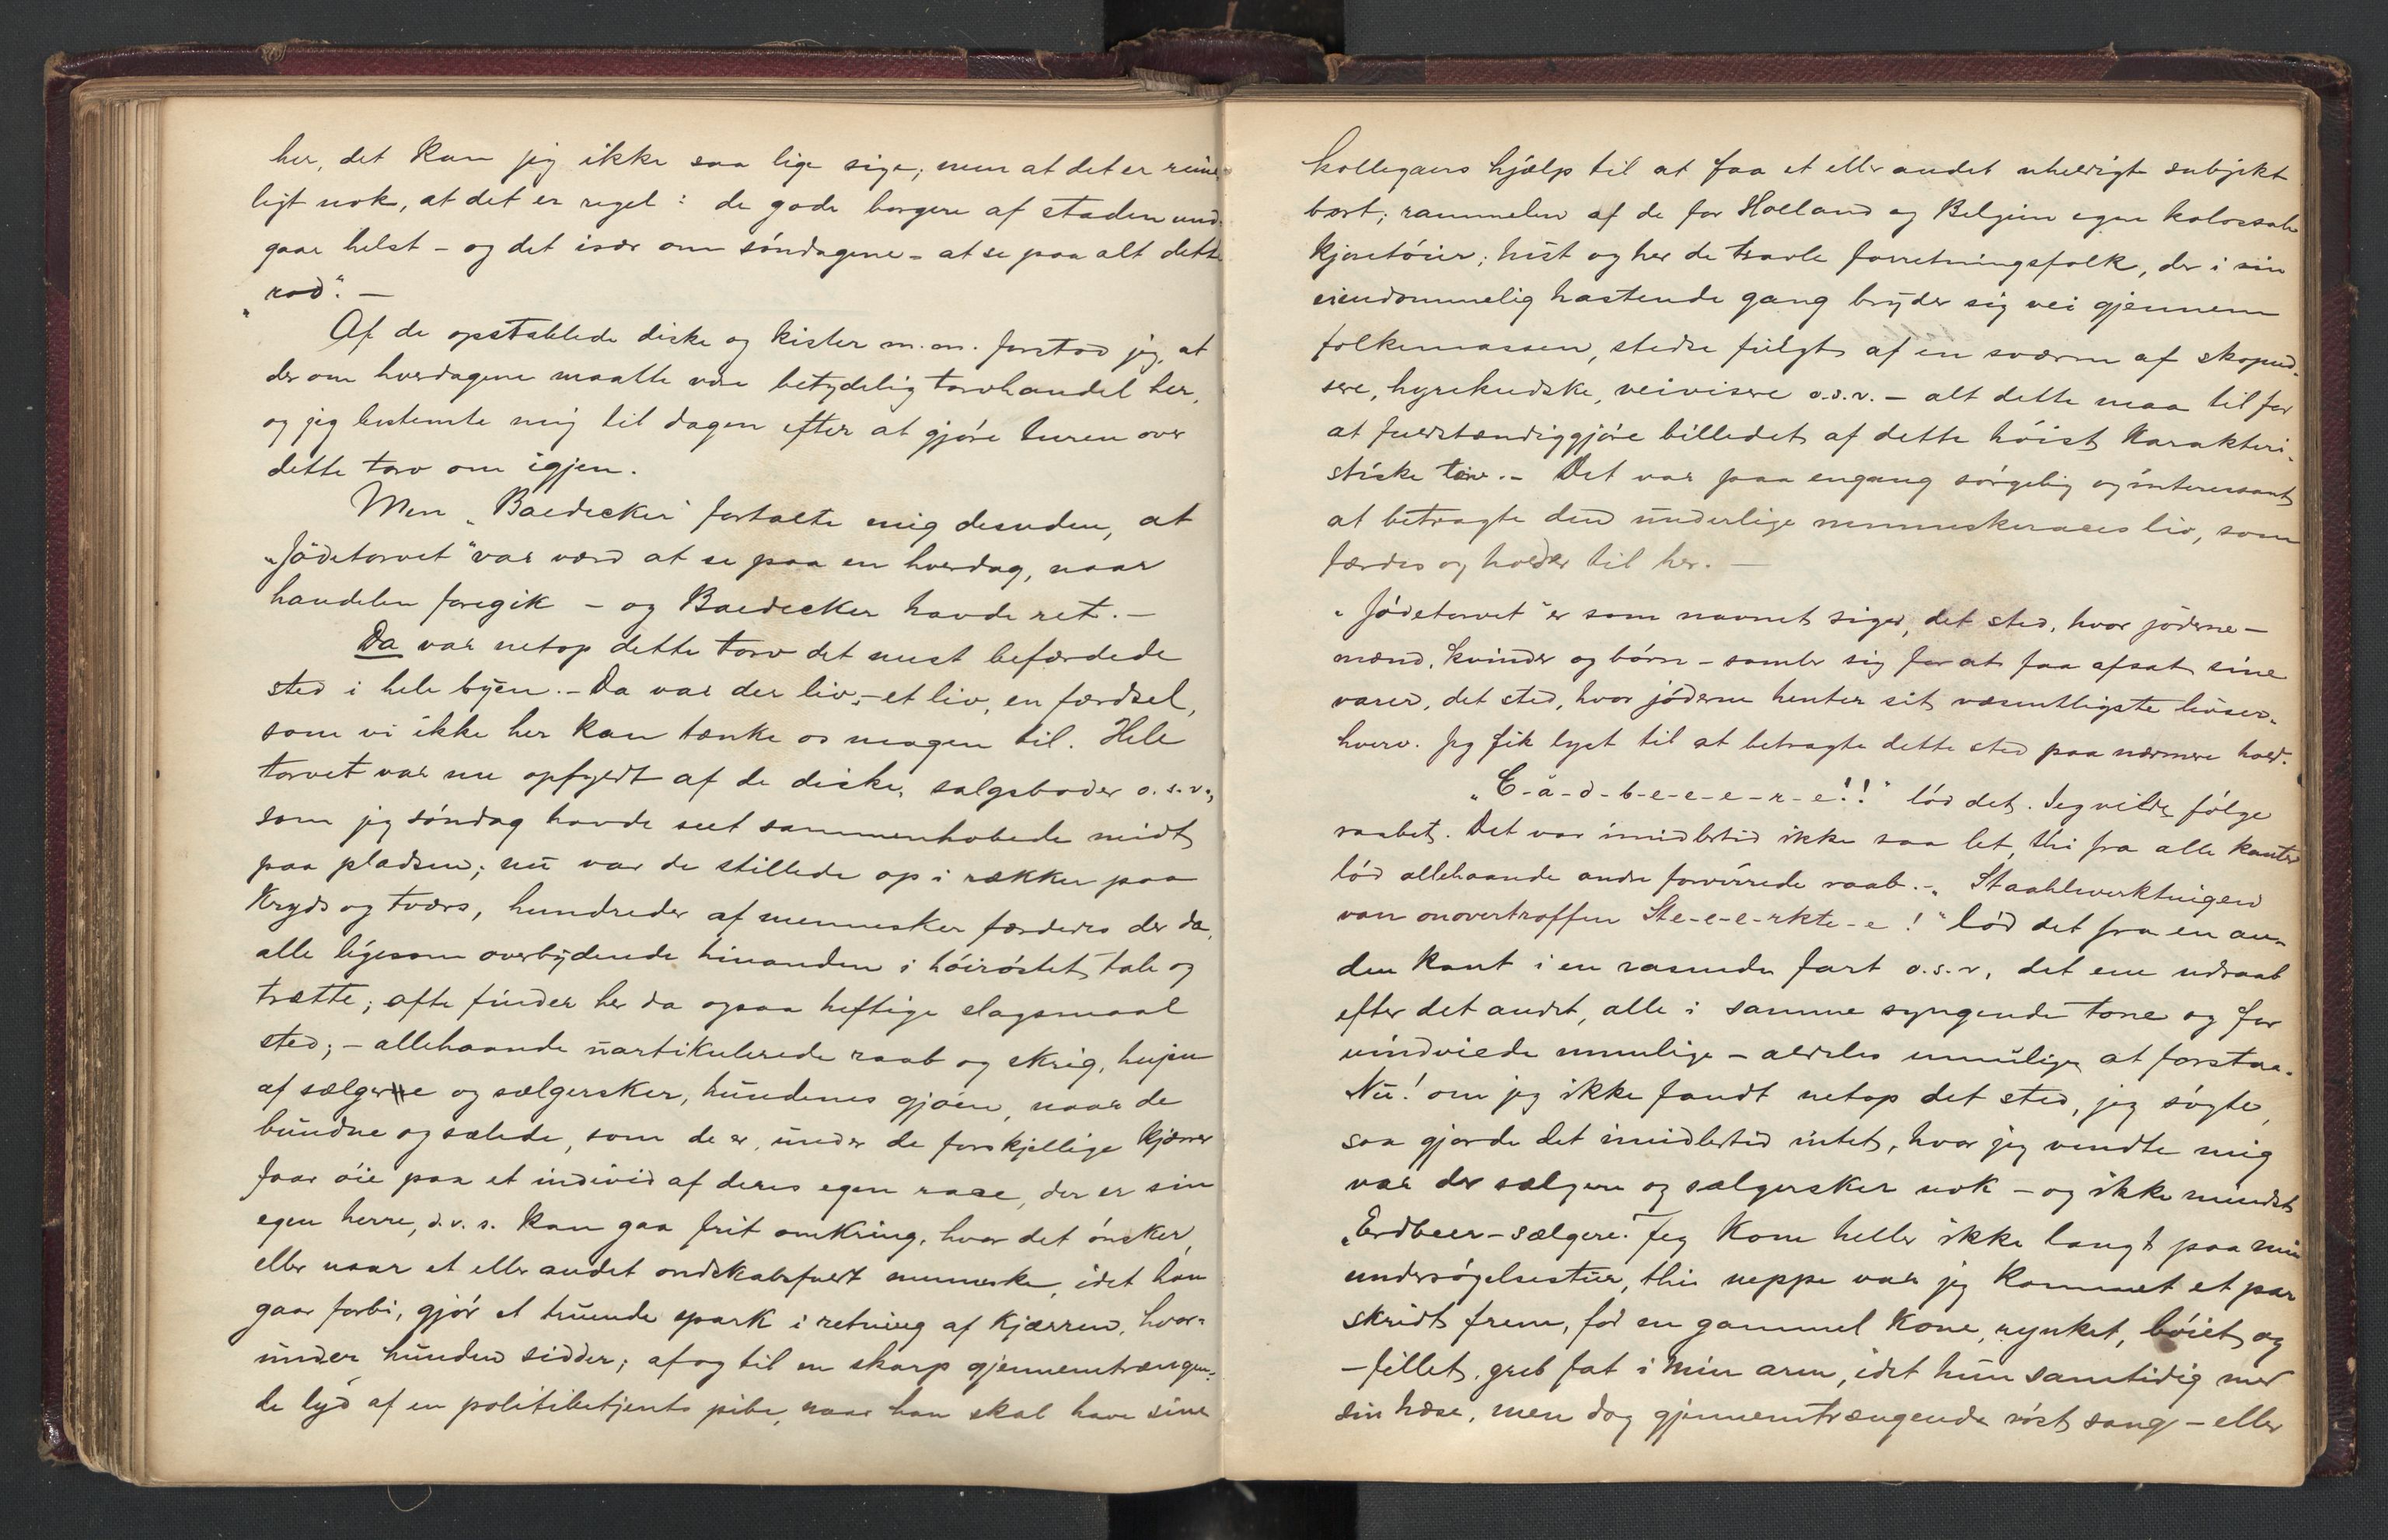 her, det kan jeg ikke saa lige sige; men at det er rime-
ligt nok, at det er regel: de gode borgere af staden und-
gaar helst – og det især om søndagene – at se paa alt dette
„rod“. –
Af de opstablede diske og kister m.m. forstod jeg, at
der om hverdagene maatte være betydelig torvhandel her,
og jeg bestemte mig til dagen efter at gjøre turen over
dette torv om igjen.
Men „Baedecker“ fortalte mig desuden, at
„Jødetorvet“ var værd at se paa en hverdag, naar
handelen foregik – og Baedecker havde ret. –
Da var netop dette torv det mest befærdede
sted i hele byen. – Da var der liv, – et liv, en færdsel,
som vi ikke her kan tænke os magen til. Hele
torvet var nu opfyldt af de diske, salgsboder o.s.v.,
som jeg søndag havde seet sammenhobede midt
paa pladsen; nu var de stillede op i rækker paa
kryds og tværs, hundreder af mennesker færdedes der da,
alle ligesom overbydende hinanden i høirøstet tale og
trætte; ofte finder her da ogsaa heftige slagsmaal
sted; – allehaande uartikulerede raab og skrig, hujen
af sælgere og sælgersker, hundenes gjøen, naar de
bundne og sælede, som de er, under de forskjellige kjærrer
faar øie paa et individ af deres egen race, der er sin
egen herre, d.v.s. kan gaa frit omkring, hvor det ønsker,
eller naar et eller andet ondskabsfuldt menneske, idet han
gaar forbi, gjør et truende spark i retning af kjærren, hvor-
under hunden sidder; af og til en skarp gjennemtrængen-
de lyd af en politibetjents pibe, naar han skal have sine
kollegaers hjælp til at faa et eller andet uheldigt subjekt
bort; rammelen af de for Holland og Belgien egne kolossale
kjøretøier; hist og her de travle forretningsfolk, der i sin
eiendommelig hastende gang bryder sig vei gjennem
folkemassen, stedse fulgt af en sværm af skopud-
sere, hyrekudske, veivisere o.s.v. – alt dette maa til for
at fuldstændiggjøre billedet af dette høist karakteri-
stiske torv. – Det var paa engang sørgelig og interessant
at betragte den underlige menneskeraces liv, som
færdes og holder til her. –
„Jødetorvet“ er som navnet siger, det sted, hvor jøderne –
mænd, kvinder og børn – samler sig for at faa afsat sine
varer, det sted, hvor jøderne henter sit væsentligste livser-
hverv. Jeg fik lyst til at betragte dette sted paa nærmere hold.
„E-ä-d-b-e-e-e-r-e!!“ lød det. Jeg vilde følge
raabet. Det var imidlertid ikke saa let, thi fra alle kanter
lød allehaande andre forvirrede raab. – „Staahlwerktuigen
van onovertroffen Ste-e-e-rkte-e!“ lød det fra en an-
den kant i en rasende fart o.s.v., det ene udraab
efter det andet, alle i samme syngende tone og for
uindviede umulige – aldeles umulige at forstaa.
Nu! om jeg ikke fandt netop det sted, jeg søgte,
saa gjorde det imidlertid intet, hvor jeg vendte mig
var der sælgere og sælgersker nok – og ikke mindst
„Erdbeer-sælgere“. Jeg kom heller ikke langt paa min
undersøgelsestur, thi neppe var jeg kommet et par
skridt frem, før en gammel kone, rynket, bøiet og
– fillet, greb fat i min arm, idet hun samtidig med
sin hæse, men dog gjennemtrængende røst sang – eller